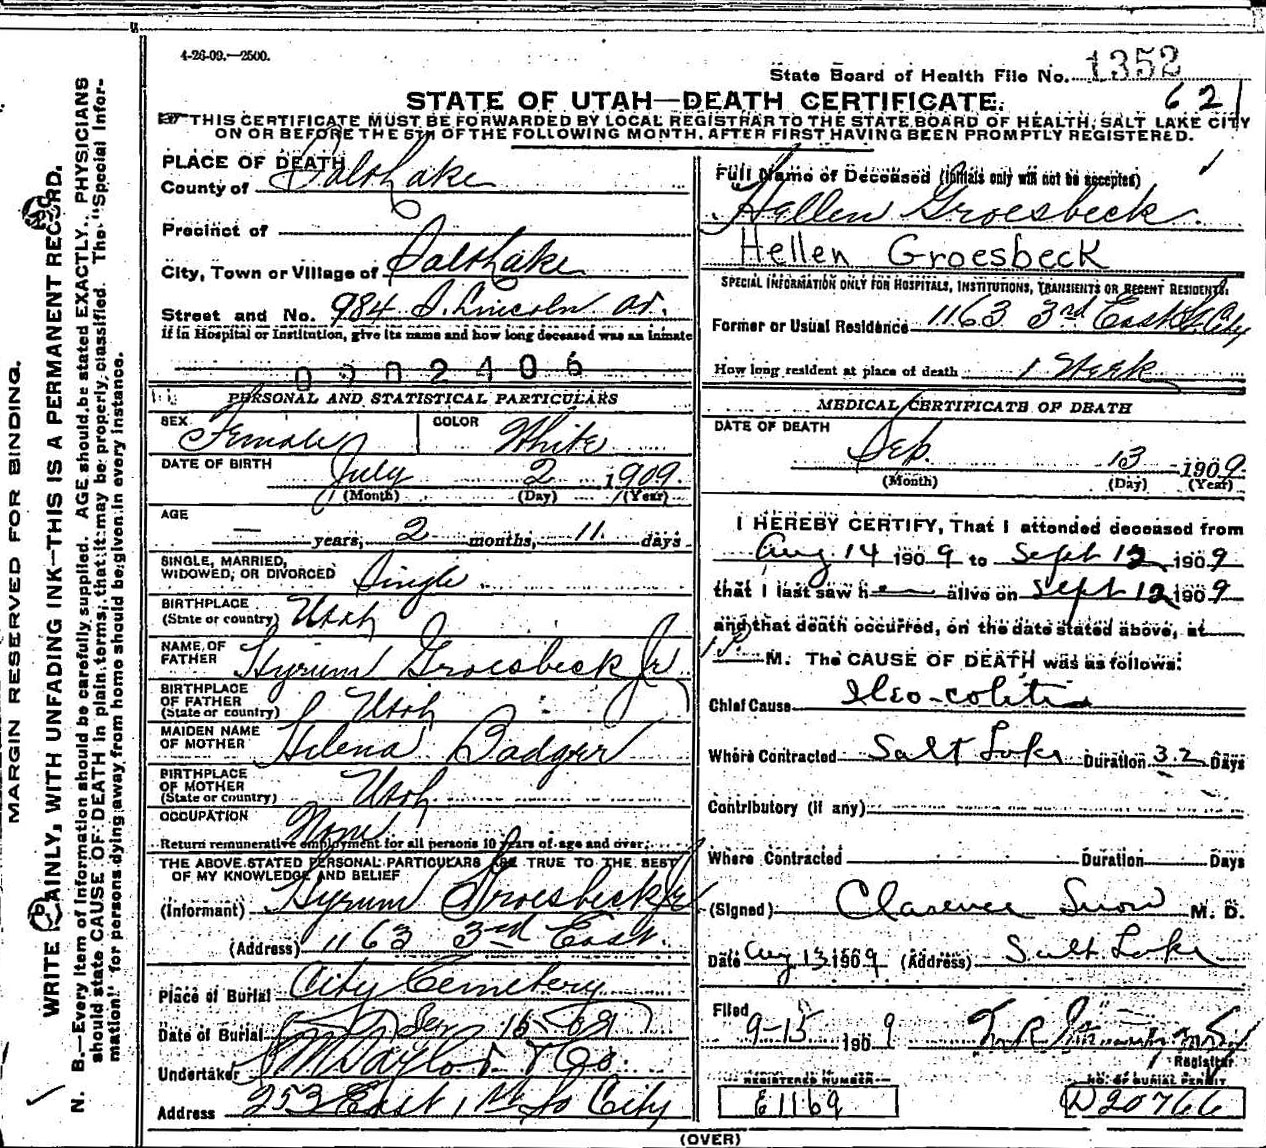 4-26-09.—2500.
State Board of Health File No. 1352
621
STATE OF UTAH—DEATH CERTIFICATE.
THIS CERTIFICATE MUST BE FORWARDED BY LOCAL REGISTRAR TO THE STATE BOARD OF HEALTH, SALT LAKE CITY
ON OR BEFORE THE 5TH OF THE FOLLOWING MONTH, AFTER FIRST HAVING BEEN PROMPTLY REGISTERED.
MARGIN RESERVED FOR BINDING.
WRITE PLAINLY, WITH UNFADING INK—THIS IS A PERMANENT RECORD.
N. B.—Every item of information should be carefully supplied. AGE should be stated EXACTLY. PHYSICIANS
should state CAUSE OF DEATH in plain terms, that it may be properly classified. The "Special Infor-
mation" for persons dying away from home should be given in every instance.
PLACE OF DEATH
County of Salt Lake
Precinct of
City, Town or Village of Salt Lake
Street and No. 984 S. Lincoln
If in Hospital or Institution, give its name and how long deceased was an inmate
0002406
PERSONAL AND STATISTICAL PARTICULARS
SEX Female COLOR White
DATE OF BIRTH July 2 1909
(Month) (Day) (Year)
AGE — years, 2 months, 11 days
SINGLE, MARRIED,
WIDOWED, OR DIVORCED Single
BIRTHPLACE
(State or country) Utah
NAME OF
FATHER Hyrum Groesbeck Jr
BIRTHPLACE
OF FATHER
(State or country) Utah
MAIDEN NAME
OF MOTHER Helena Badger
BIRTHPLACE
OF MOTHER
(State or country) Utah
OCCUPATION None
Return remunerative employment for all persons 10 years of age and over.
THE ABOVE STATED PERSONAL PARTICULARS ARE TRUE TO THE BEST
OF MY KNOWLEDGE AND BELIEF
(Informant) Hyrum Groesbeck Jr
(Address) 1163 3rd East.
Place of Burial City Cemetery
Date of Burial Sep 15-09
Undertaker Taylor & Co.
Address 253 East 1st So City
Full Name of Deceased (Initials only will not be accepted)
Hellen Groesbeck.
Hellen Groesbeck
SPECIAL INFORMATION ONLY FOR HOSPITALS, INSTITUTIONS, TRANSIENTS OR RECENT RESIDENTS.
Former or Usual Residence 1163 3rd East City
How long resident at place of death 1 Week
MEDICAL CERTIFICATE OF DEATH
DATE OF DEATH
Sep. 13 1909
(Month) (Day) (Year)
I HEREBY CERTIFY, That I attended deceased from
Aug 14 1909 to Sept 12 1909
that I last saw h alive on Sept 12 1909
and that death occurred, on the date stated above, at
1 P. M. The CAUSE OF DEATH was as follows:
Chief Cause Ileo-colitis
Where Contracted Salt Lake Duration 32 Days
Contributory (if any)
Where Contracted Duration Days
(Signed) Clarence Snow M. D.
Date Aug 13 1909 (Address) Salt Lake
Filed
9-15 1909
Registrar
REGISTERED NUMBER NO. OF BURIAL PERMIT
E1169 D20766
(OVER)